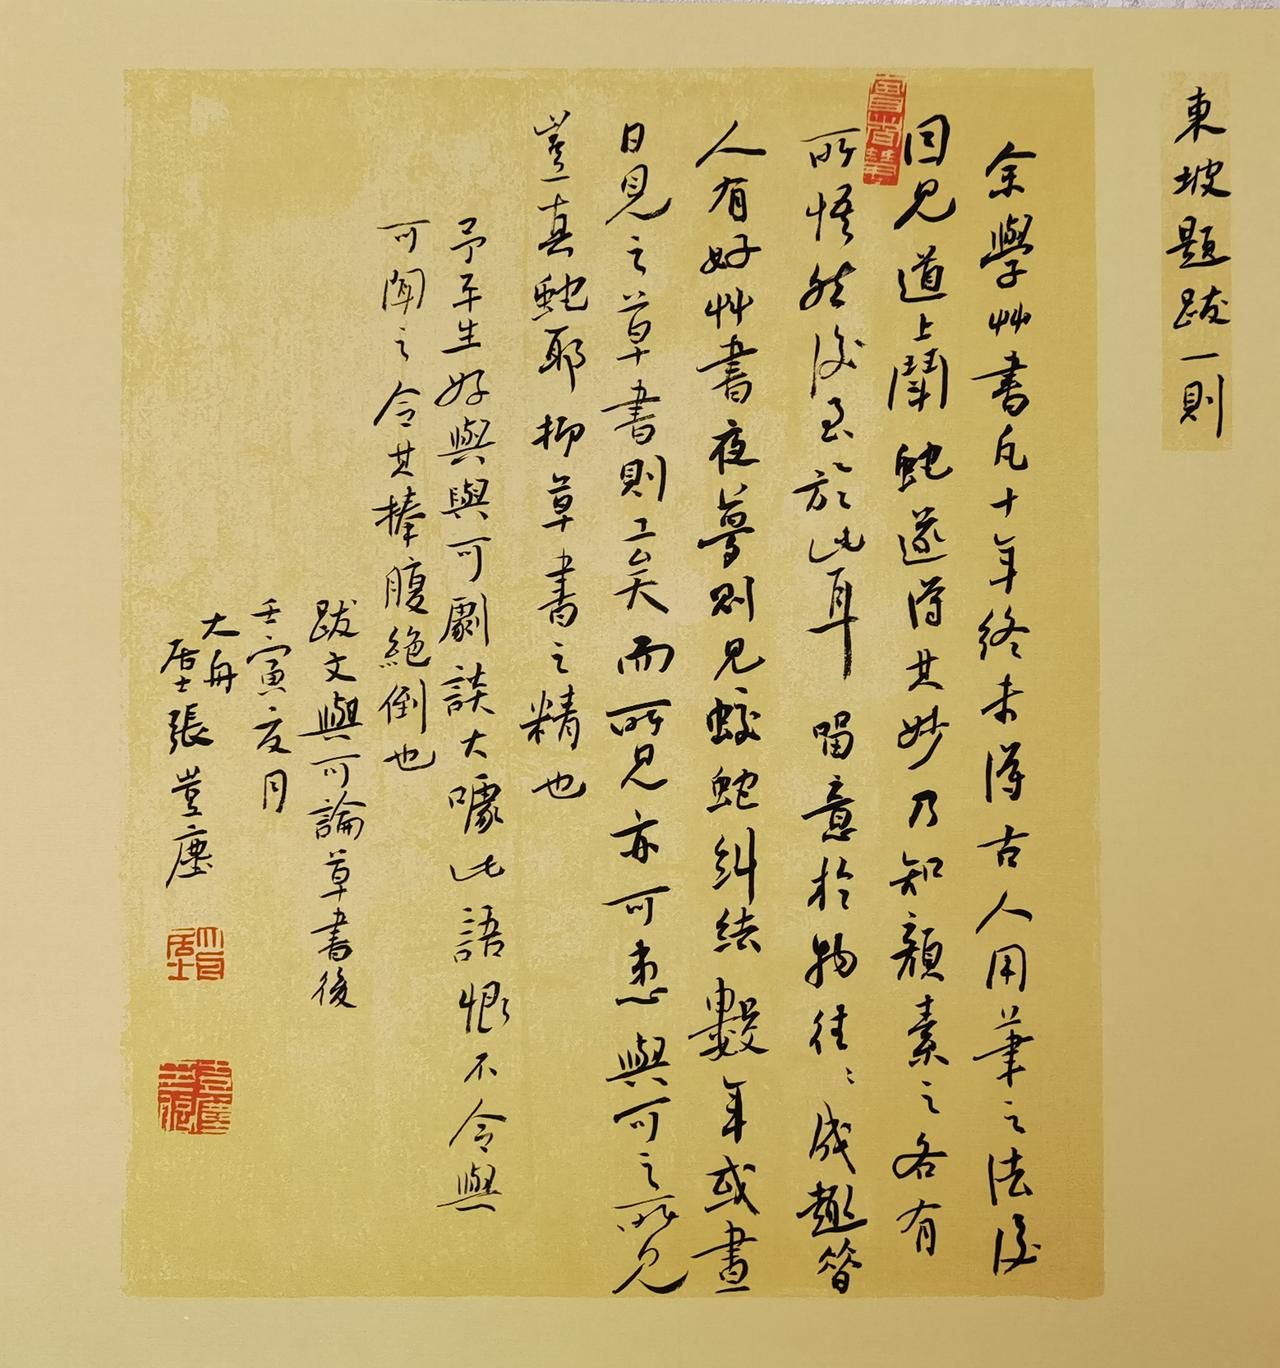 東坡題跋一則
余學艸書凡十年終未得古人用筆之法後
因見道上鬪蛇遂得其妙乃知顏素之各有
所悟然後至於此耳 留意於物往往成趣昔
人有好艸書夜夢則見蛟蛇糾結數年或晝
日見之草書則工矣而所見亦可患與可之所見
豈真蛇耶抑草書之精也
予平生好與與可劇談大噱此語恨不令與
可聞之令其捧腹絕倒也
跋文與可論草書後
壬寅夏月
大舟
居士張豈塵